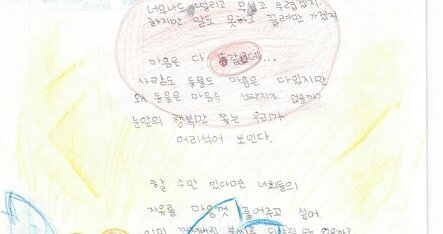 너무나도 떨리고 무섭고 두렵겠지
하지만 말도 못하고 끌려만 가겠지
마음은 다 똑같은데...
사람도 동물도 마음은 다 있지만
왜 동물은 마음속 선택지가 없을까?
눈앞의 행복만 쫓는 우리가
어리석어 보인다.
할 수만 있다면 너희들의
자유를 마음껏 풀어주고 싶어
이미